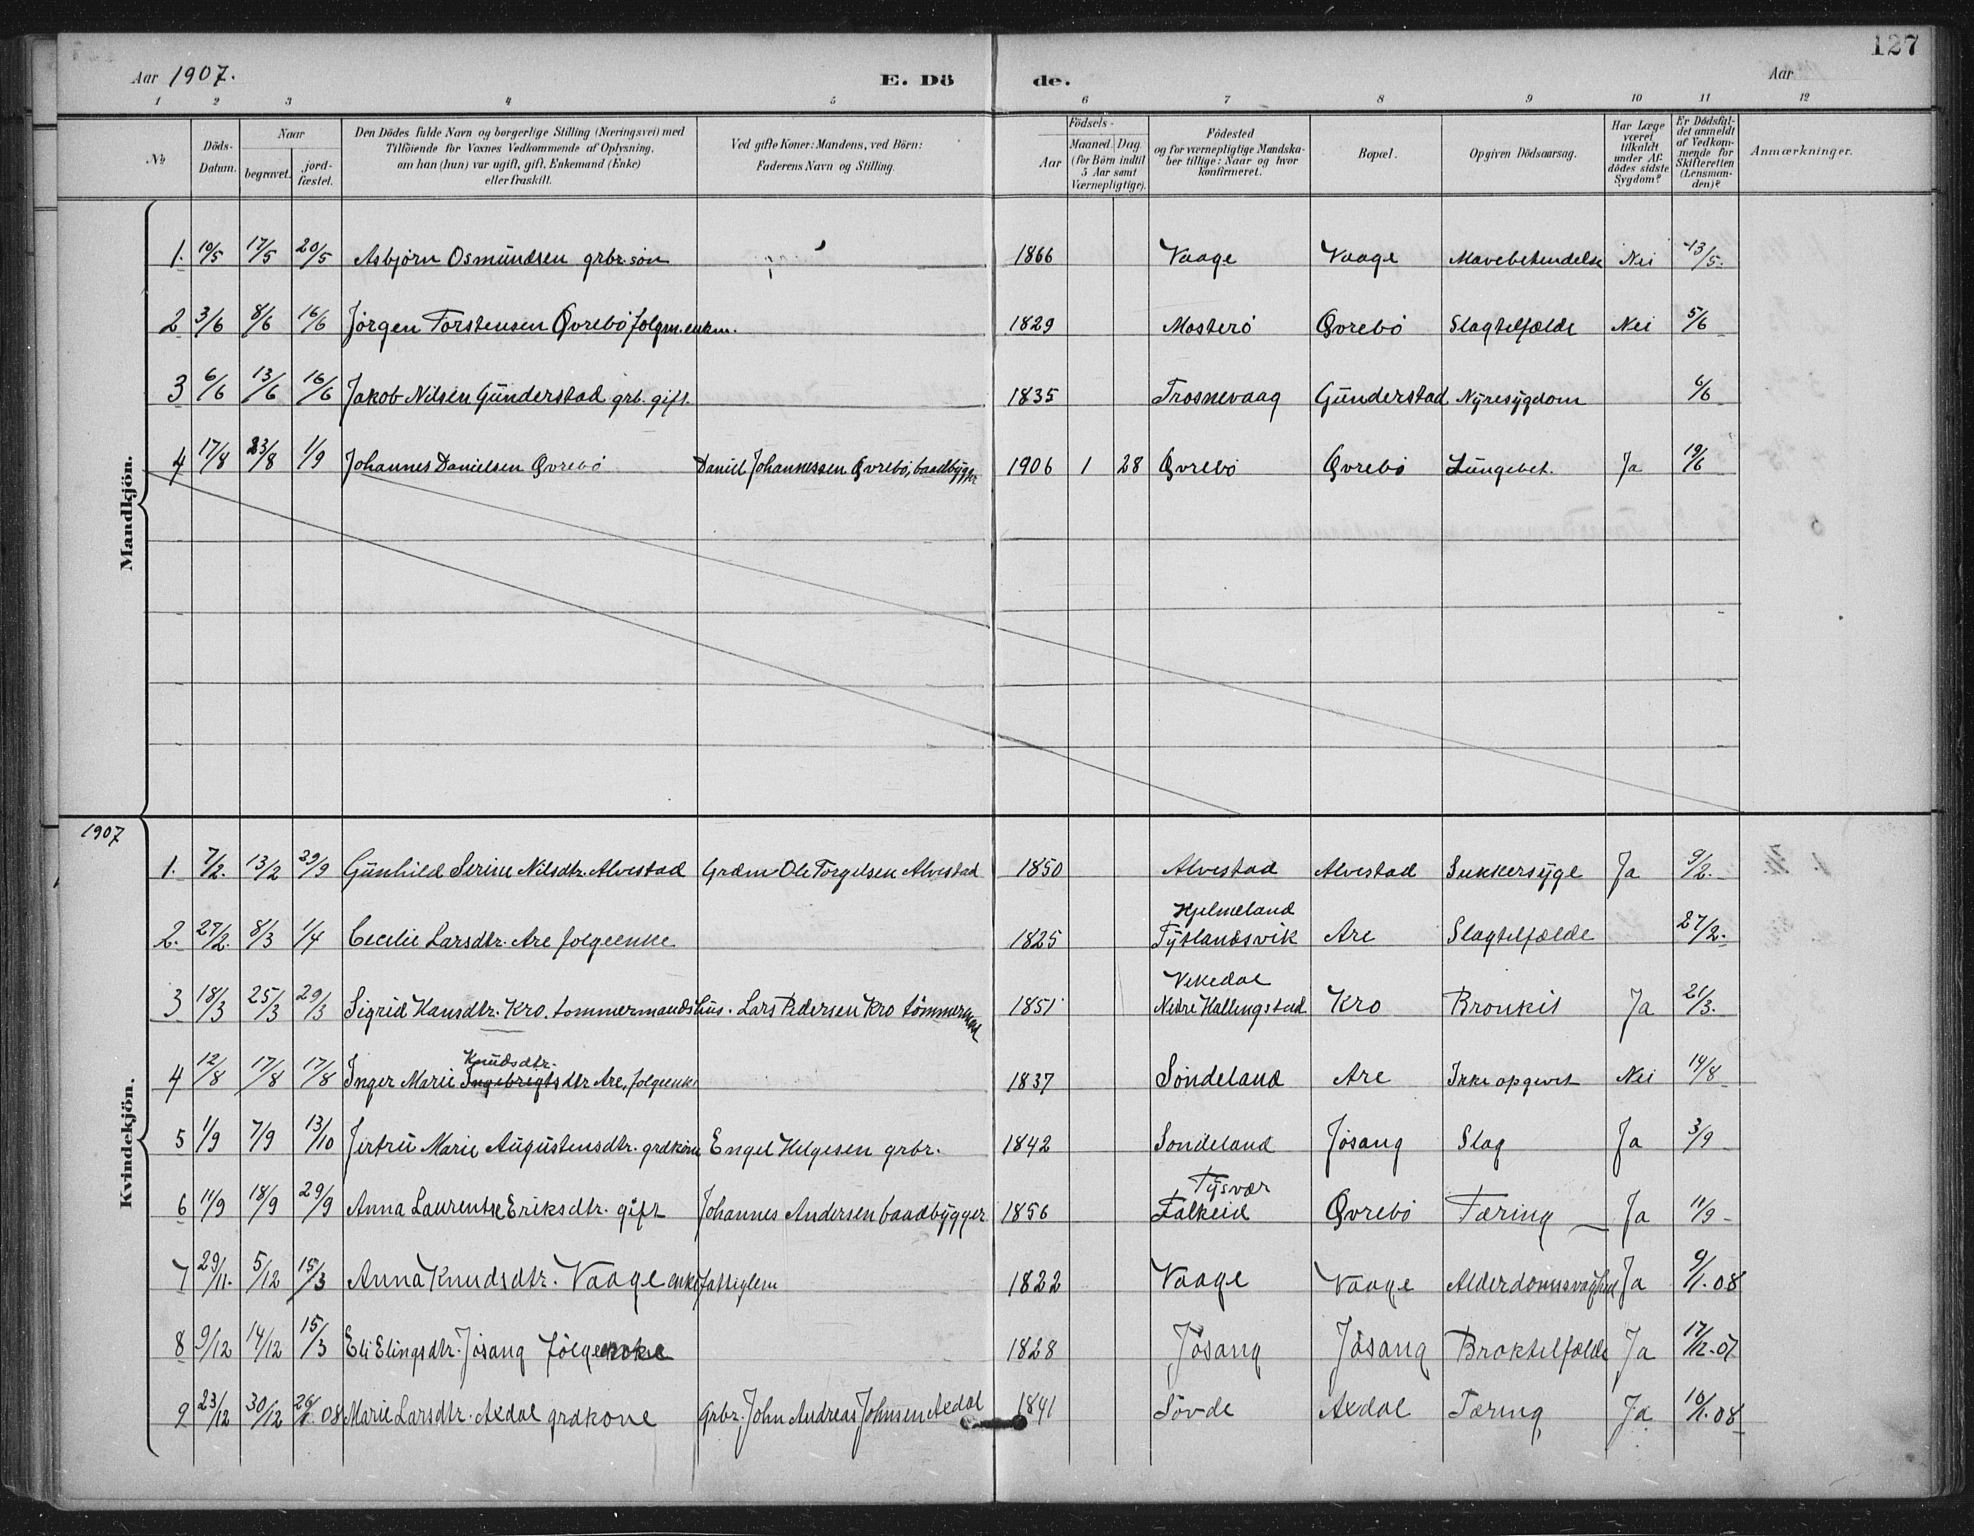 127
Aar 1907. E. Dö de. Aar
1 2 3 4 5 6 7 8 9 10 11 12
No
Döds-Datum.
Naar
begravet.
jord-fæstet.
Den Dödes fulde Navn og borgerlige Stilling (Næringsvei) med
Tilföiende for Voxnes Vedkommende af Oplysning,
om han (hun) var ugift, gift, Enkemand (Enke)
eller fraskilt.
Ved gifte Koner: Mandens, ved Börn:
Faderens Navn og Stilling.
Födsels-
Aar
Maaned. Dag
(for Börn indtil
5 Aar samt
Værnepligtige).
Födested
og for værnepligtige Mandska-
ber tillige: Naar og hvor
konfirmeret.
Bopæl.
Opgiven Dödsaarsag.
Har Læge
været
tilkaldt
under Af-
dödes sidste
Sygdom?
Er Dödsfal-
det anmeldt
af Vedkom-
mende for
Skifteretten
(Lensman-
den)?
Anmærkninger.
Mandkjön.
1. 10/5 17/5 20/5 Asbjørn Osmundsen grbr. søn 1866 Vaage Vaage Mavebetendelse Nei 13/5.
2 3/6 8/6 16/6 Jørgen Torstensen Øvrebø folgm. enkm. 1829 Mosterø Øvrebø Slagtilfælde Nei 5/6
3 6/6 13/6 16/6 Jakob Nilsen Gunderstad grb. gift. 1835 Trosnevaag Gunderstad Nyresygdom 6/6
4 17/8 23/8 1/9 Johannes Danielsen Øvrebø Daniel Johannessen Øvrebø, baadbygger 1906 1 28 Øvrebø Øvrebø Lungebet. Ja 19/6
1907
Kvindekjön.
1. 7/2. 13/2 29/9 Gunhild Serine Nilsdtr. Alvestad Grdm Ole Torgelsen Alvestad 1850 Alvestad Alvestad Sukkersyge Ja 9/2.
2. 27/2. 8/3 1/4 Cecilie Larsdtr. Are folgeenke 1825 Hjelmeland Tytlandsvik Are Slagtilfælde 27/2.
3 18/3 25/3 29/3 Sigrid Hansdtr. Kro. tommermands hus. Lars Pedersen Kro tømmermand 1851 Vikedal Nedre Hallingstad Kro Bronkit Ja 21/3.
4 12/8 17/8 17/8 Inger Marie Ingebrigtsdtr Knudsdtr. Are, folgeenke 1837 Søndeland Are Ikke opgivet Nei 14/8
5 1/9 7/9 13/10 Jirtru Marie Augustensdtr. grdkone Engel Helgesen grbr. 1842 Søndeland Jøsang Slag Ja 3/9
6 11/9 18/9 29/9 Anna Laurentse Eriksdtr. gift Johannes Andersen baadbygger 1856 Tysvær Falkeid Øvrebø Tæring Ja 11/9
7 29/11. 5/12 15/3 Anna Knudsdtr. Vaage enke fattiglem 1822 Vaage Vaage Alderdomssvaghed Ja 9/1.08
8 9/12 14/12 15/3 Eli Elingsdtr. Jøsang følgeenke 1828 Jøsang Jøsang Broktilfælde Ja 17/12.07
9 23/12 30/12 26/1 08 Marie Larsdtr. Axdal grdkone grbr. John Andreas Johnsen Axdal 1841 Søvde Axdal Tæring Ja 10/1.08